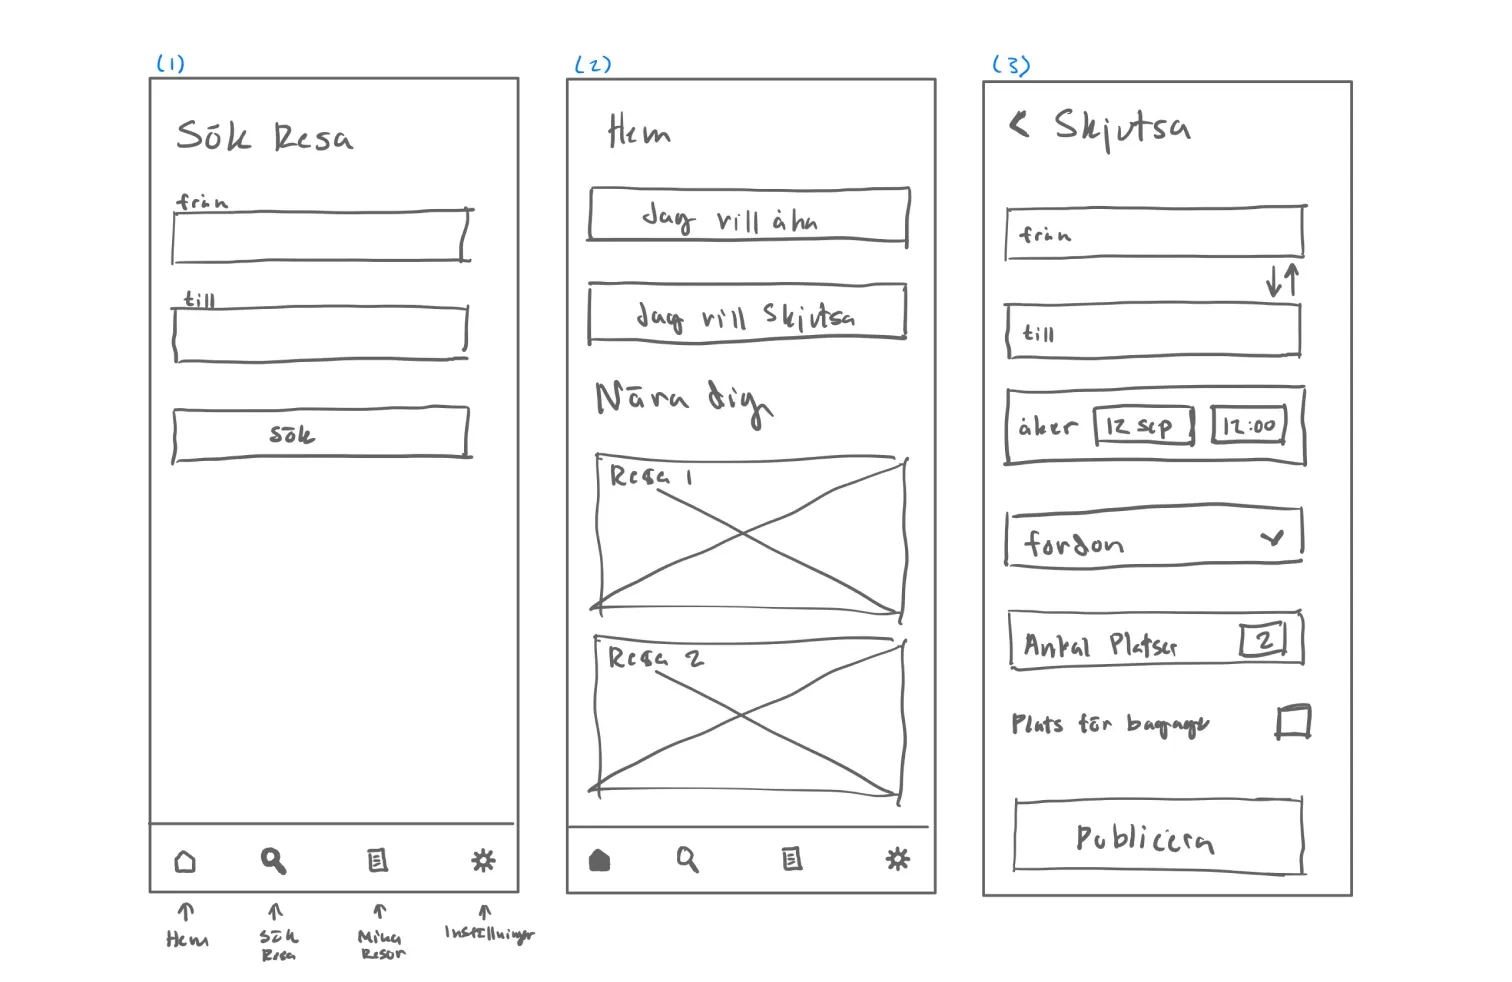 (1)
Sök Resa
från
till
Sök
Hem
Sök
Resa
Mina
Resor
Inställningar
(2)
Hem
Jag vill åka
Jag vill Skjutsa
Nära dig
Resa 1
Resa 2
(3)
< Skjutsa
från
till
åker 12 sep 12:00
fordon
Antal Platser 2
Plats för bagage
Publicera